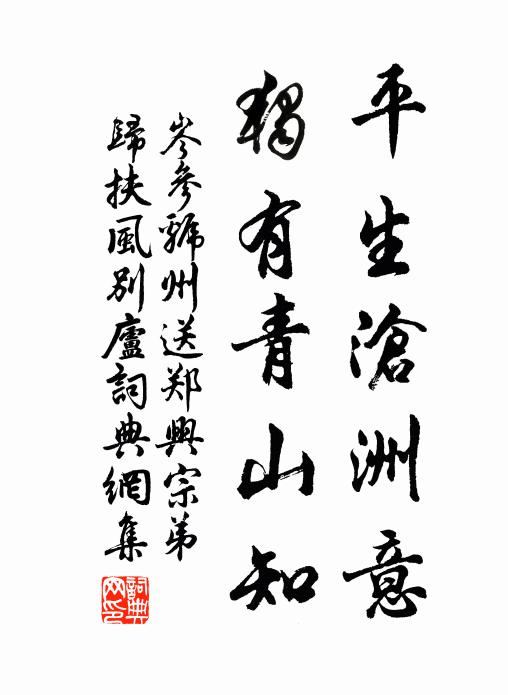 平生滄洲意
獨有青山知
岑參虢州送郑興宗弟
歸扶風別廬詞典網集
詞典
网印